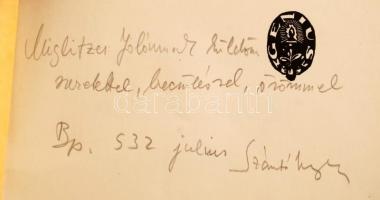 Miglitzer Jolánnak küldöm
szeretettel, becsüléssel, örömmel
Bp. 932 július Szántó
GENIUS
darabanth